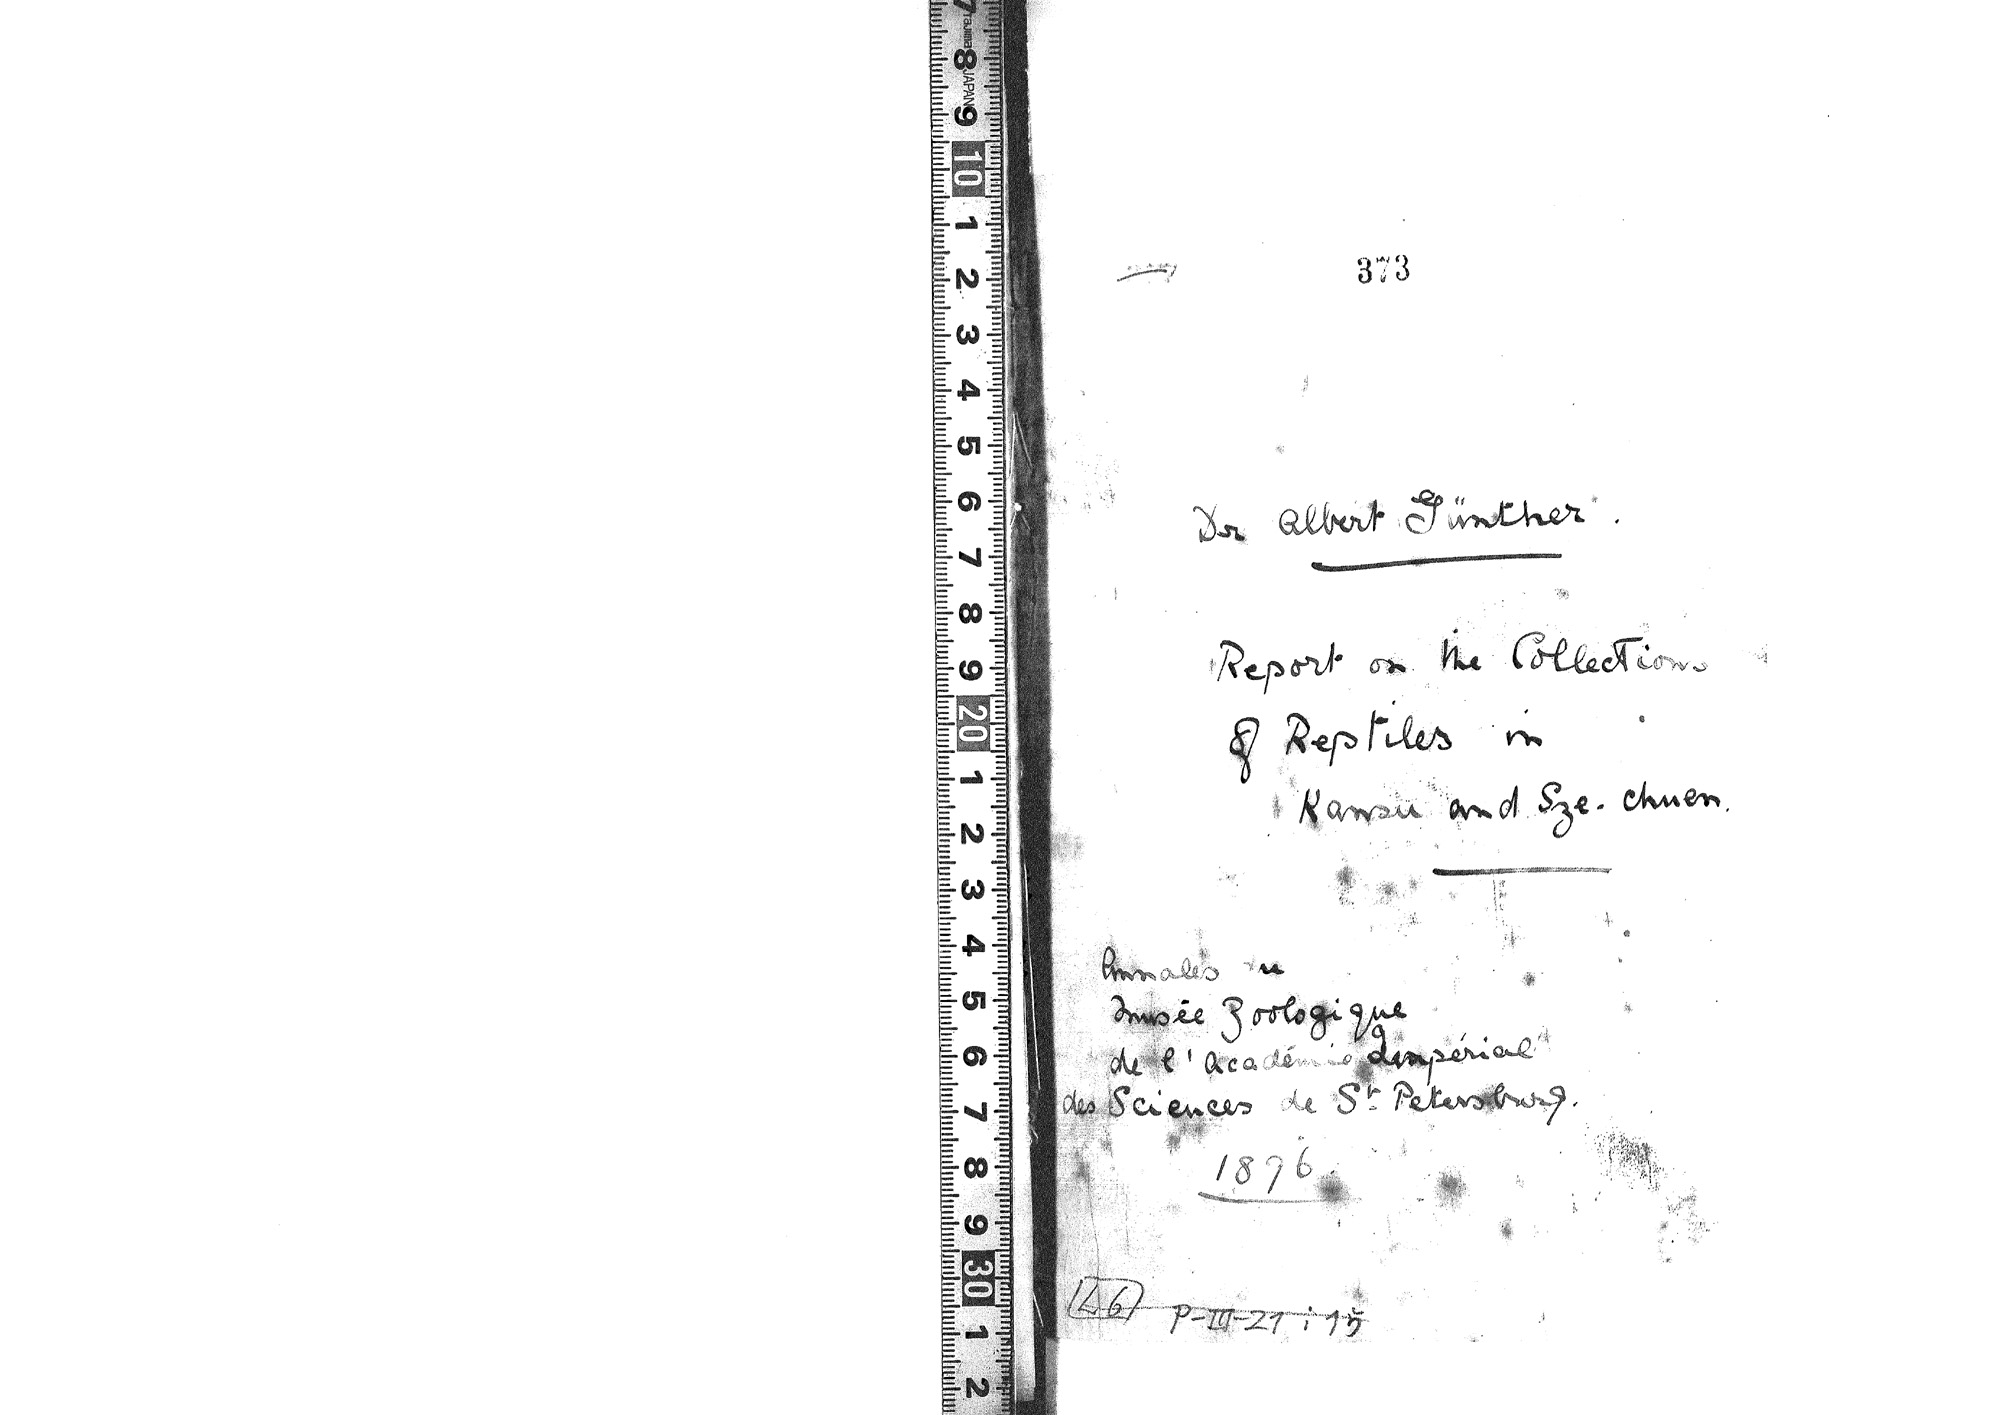 7
8
9
10
1
2
3
4
5
6
7
8
9
20
1
2
3
4
5
6
7
8
9
30
1
2
Tajima JAPAN
373
Dr Albert Günther.
Report on the Collections
of Reptiles in
Kansu and Sze-chuen.
Annales du
Musée Zoologique
de l'Académie Impérial
des Sciences de St. Petersburg.
1896
L6
P-III-21:15